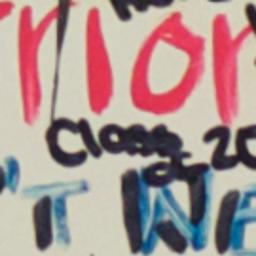 rior
Class of 20
"TWE